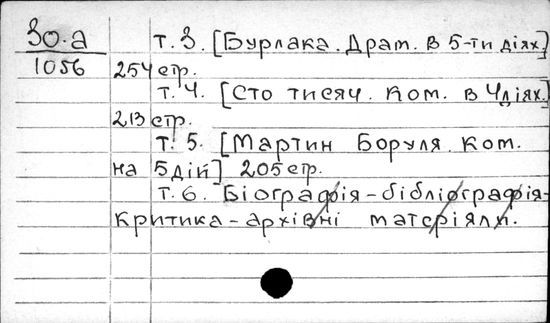 30.а т. 3. [Бурлака. Драм. в 5-ти діях]
1056 254 стр.
т. 4. [Сто тисяч. Ком. в 4 діях.]
213 стр.
т. 5. [Мартин Боруля. Ком.
на 5 дій] 205 стр.
т. 6. Біографія-бібліографія-
критика-архівні матеріяли.